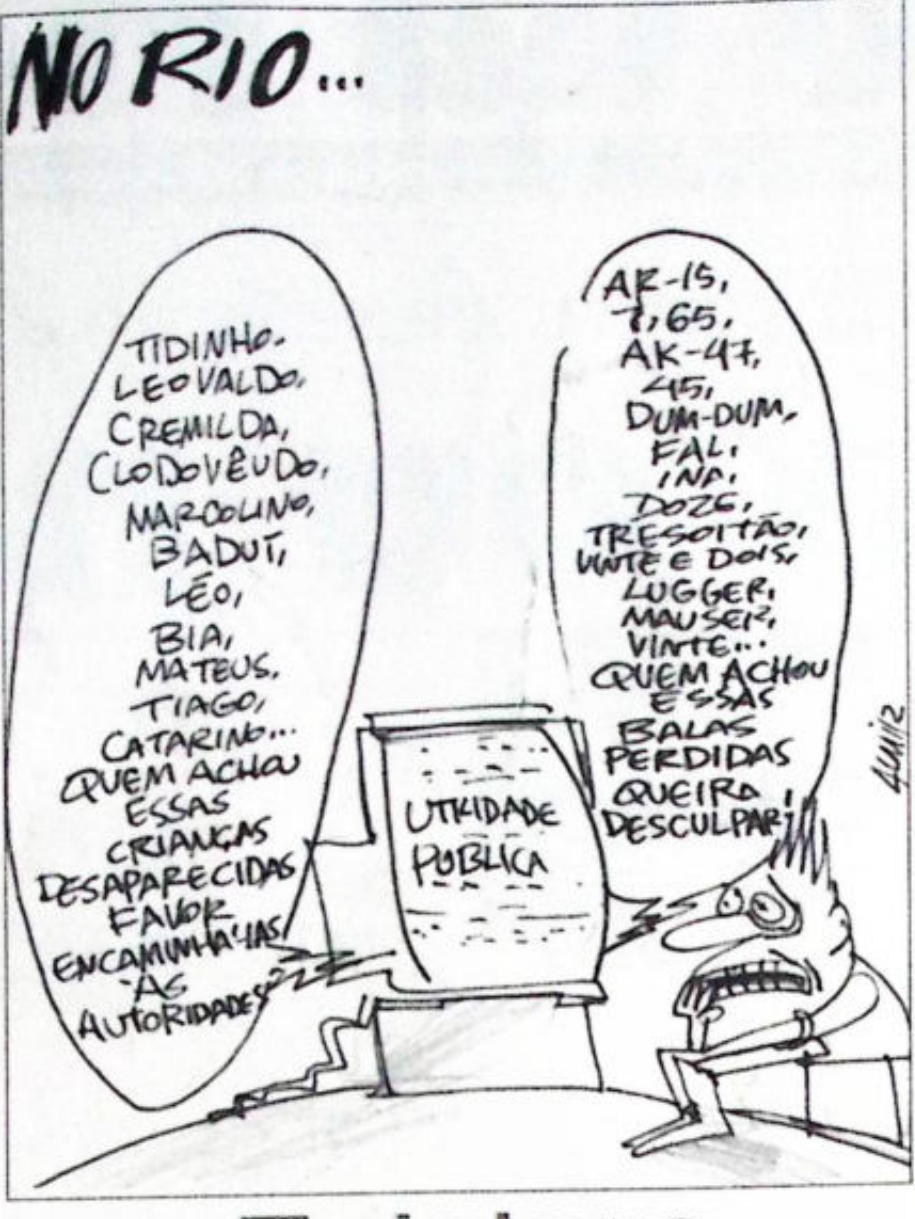 NO RIO...
TIDINHO,
LEOVALDO,
CREMILDA,
CLODOVÊUDO,
MARCOLINO,
BADUÍ,
LÉO,
BIA,
MATEUS,
TIAGO,
CATARINO...
QUEM ACHOU
ESSAS
CRIANÇAS
DESAPARECIDAS
FAVOR
ENCAMINHÁ-LAS
ÀS
AUTORIDADES
UTILIDADE
PÚBLICA
AR-15,
7,65,
AK-47,
45,
DUM-DUM,
FAL,
INA,
DOZE,
TRESOITÃO,
VINTE E DOIS,
LUGGER,
MAUSER,
VINTE...
QUEM ACHOU
ESSAS
BALAS
PERDIDAS
QUEIRA
DESCULPAR!